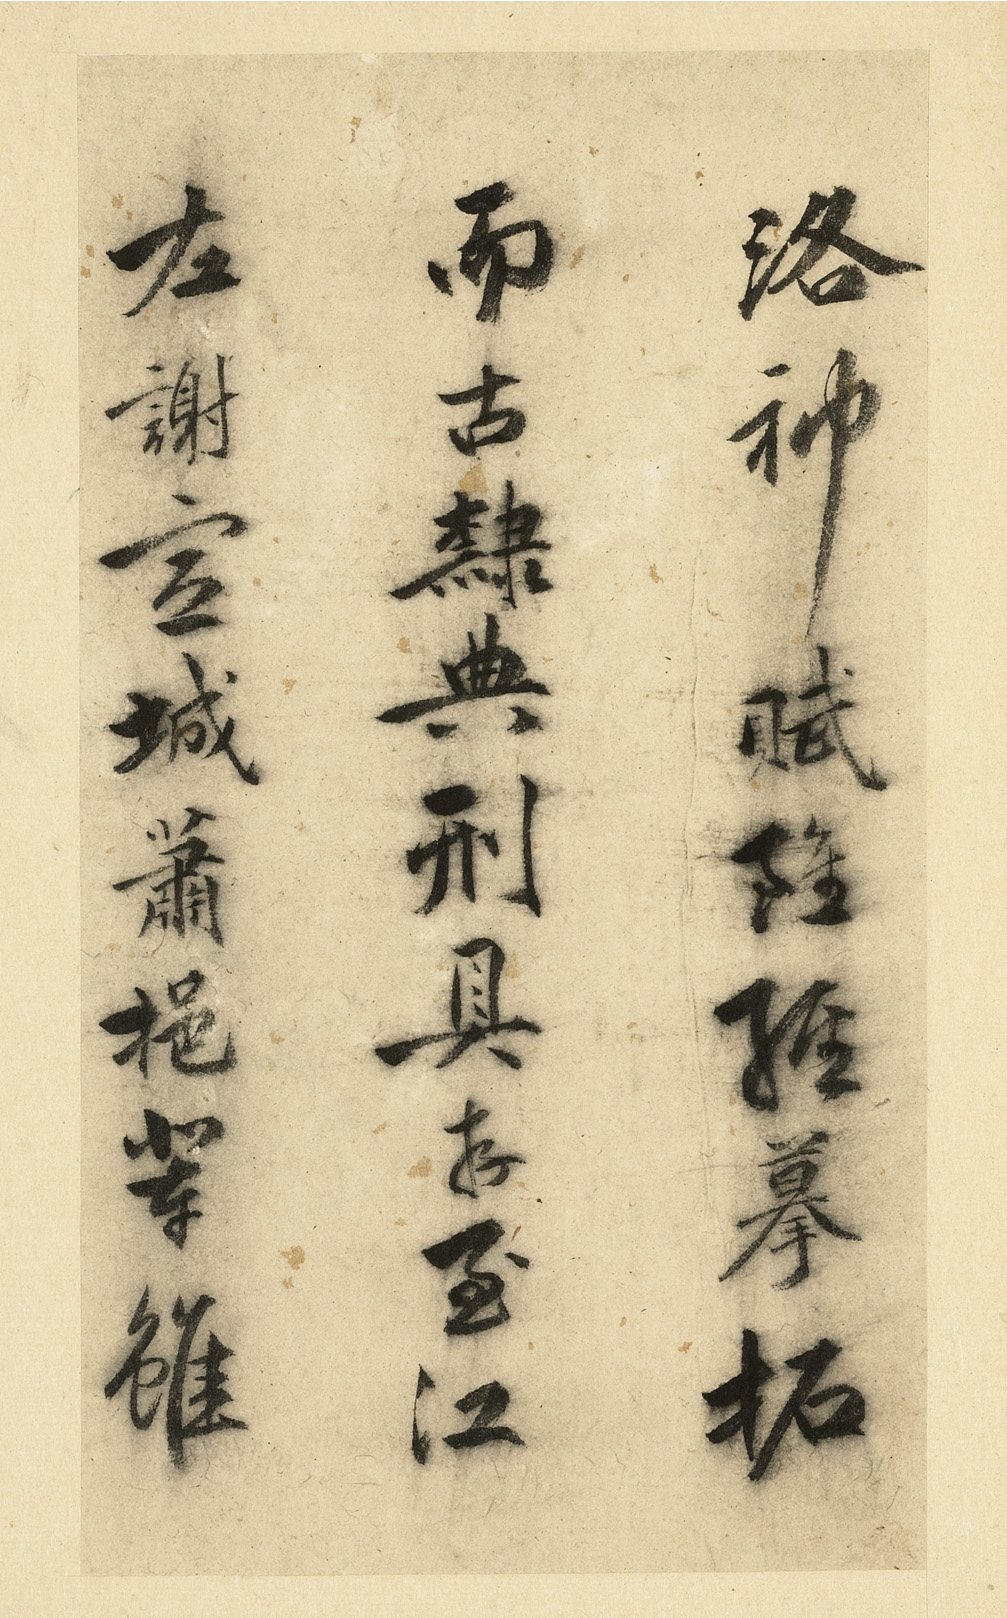 洛神賦雖經摹拓
而古隸典刑具存至江
左謝宣城蕭挹輩雖